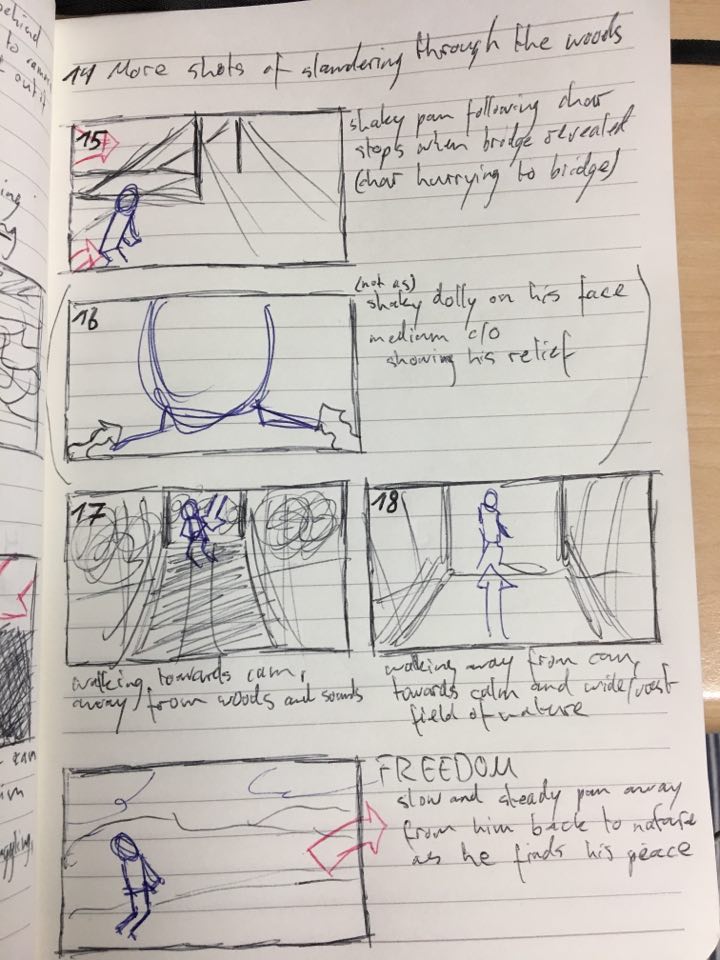 behind
to
out of it
14 More shots of slandering through the woods
15
shaky pan following char
stops when bridge revealed
(char hurrying to bridge)
16
(not as)
shaky dolly on his face
medium c/o
showing his relief
17
18
walking towards cam,
away from woods and sounds
walking away from cam,
towards calm and wide/vast
field of nature
FREEDOM
slow and steady pan away
from him back to nature
as he finds his peace